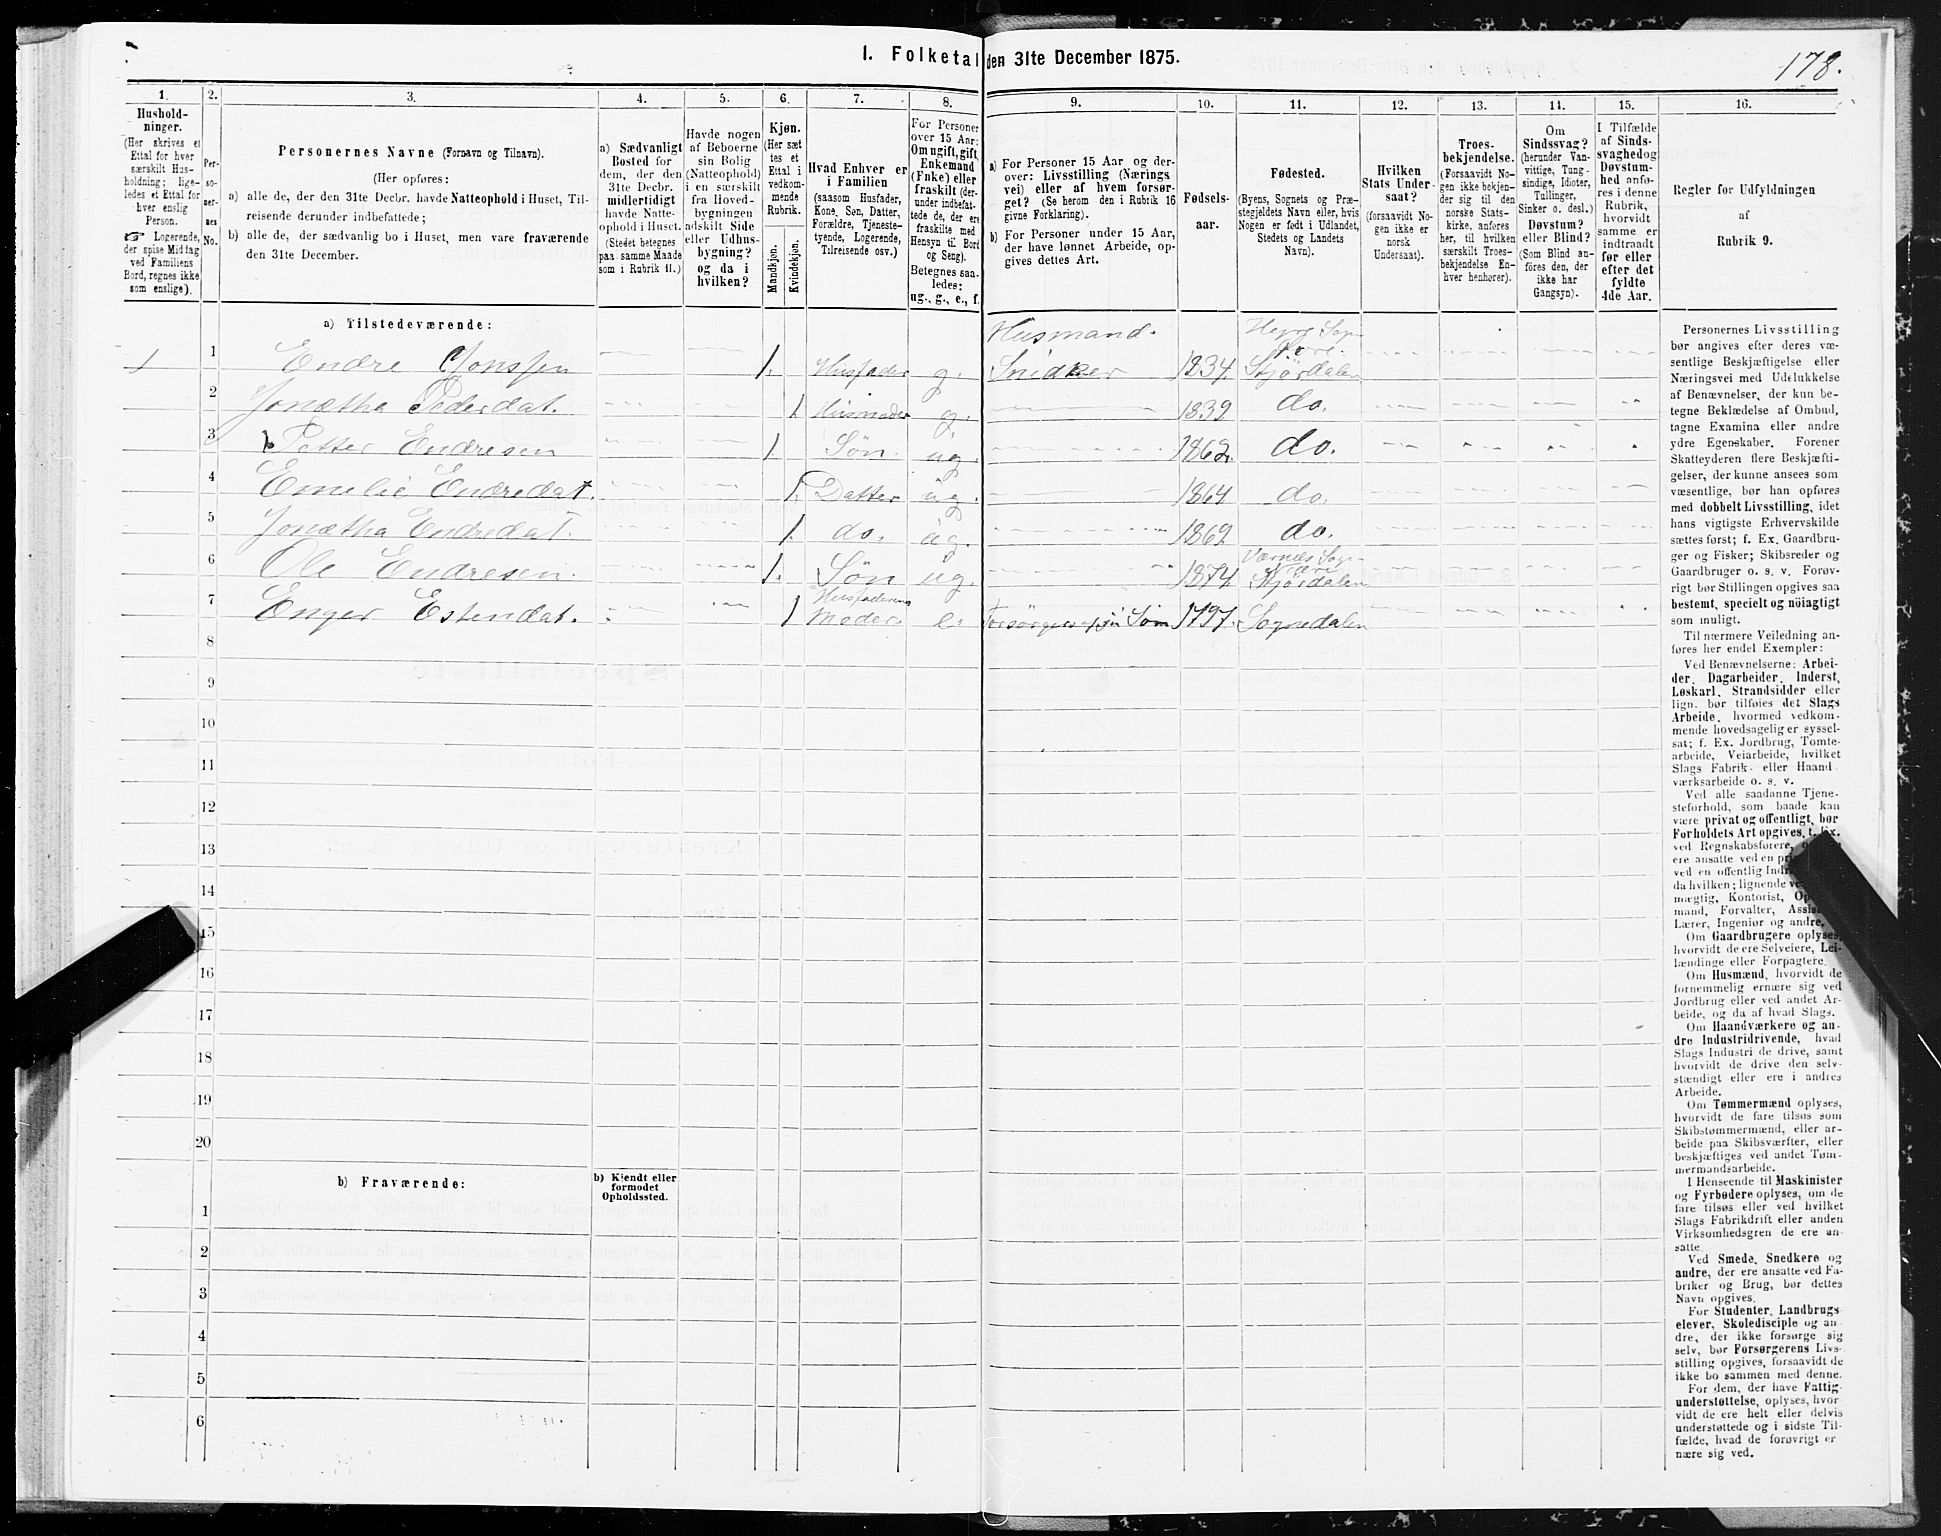 I. Folketal den 31te December 1875.
178.
1.
2.
3.
4.
5.
6.
7.
8.
9.
10.
11.
12.
13.
11.
15.
16.
Hushold-
ninger.
(Her skrives et
Ettal for hver
særskilt Hus-
holdning; lige-
ledes et Ettal for
hver enslig
Person.
☞ Logerende,
der spise Middag
ved Familiens
Bord, regnes ikke
som enslige).
Per-
so-
ner-
nes
No.
Personernes Navne (Fornavn og Tilnavn).
(Her opføres:
a) alle de, der den 31te Decbr. havde Natteophold i Huset, Til-
reisende derunder indbefattede;
b) alle de, der sædvanlig bo i Huset, men vare fraværende
den 31te December.
a) Sædvanligt
Bosted for
dem, der den
31te Decbr.
midlertidigt
havde Natte-
ophold i Huset.
(Stedet betegnes
paa samme Maade
som i Rubrik 11.)
Havde nogen
af Beboerne
sin Bolig
(Natteophold)
i en særskilt
fra Hoved-
bygningen
adskilt Side
eller Udhus-
bygning?
og da i
hvilken?
Kjøn.
(Her sæt
tes et
Ettal i
vedkom-
mende
Rubrik.
Mandkjøn.
Kvindekjøn.
Hvad Enhver er
i Familien
(saasom Husfader,
Kone, Søn, Datter,
Forældre, Tjeneste-
tyende, Logerende,
Tilreisende osv.)
For Personer
over 15 Aar:
Om ugift, gift,
Enkemand
(Enke) eller
fraskilt (der-
under indbefat-
tede de, der ere
fraskilte med
Hensyn til Bord
og Seng).
Betegnes saa-
ledes:
ug., g., e., f.
a) For Personer 15 Aar og der-
over: Livsstilling (Nærings
vei) eller af hvem forsør-
get? (Se herom den i Rubrik 16
givne Forklaring).
b) For Personer under 15 Aar,
der have lønnet Arbeide, op-
gives dettes Art.
Fødsels-
aar.
Fødested.
(Byens, Sognets og Præ-
stegjeldets Navn eller, hvis
Nogen er født i Udlandet,
Stedets og Landets
Navn).
Hvilken
Stats Under-
saat?
(forsaavidt No-
gen ikke er
norsk
Undersaat).
Troes-
bekjendelse.
(Forsaavidt No-
gen ikke bekjen-
der sig til den
norske Stats-
kirke, anføres
her, til hvilken
særskilt Troes-
bekjendelse En-
hver henhører).
Om
Sindssvag?
(herunder Van-
vittige, Tung-
sindige, Idioter,
Tullinger,
Sinker o. desl.)
Døvstum?
eller Blind?
(Som Blind an-
føres den, der
ikke har
Gangsyn).
I Tilfælde
af Sinds-
svaghed og
Døvstum-
hed anfø-
res i denne
Rubrik,
hvorvidt
samme er
indtraadt
før eller
efter det
fyldte
4de Aar.
Regler for Udfyldningen
af
Rubrik 9.
a) Tilstedeværende:
1 1 Endre Jonssen 1. Husfader g. Husmand. Snidker 1834. Hegre Sogn Nore. Stjördalen
2 Jonætha Pedersdat. 1 Husmoder g. 1839 do.
3 Petter Endresen 1 Søn. ug. 1862. do.
4 Emelie Endredat. 1. Datter ug. 1864 do.
5 Jonætha Endredat. 1. do. ug. 1869 do.
6 Ole Endresen. 1. Søn ug. 1874 Værnes Sogn Nore Stjördalen
7 Enger Estendat. 1 Husfaderens Moder e. Forsørges af sin Søn 1797. Sognedalen
8
9
10
11
12
13
14
15
16
17
18
19
20
b) Fraværende:
b) Kjendt eller
formodet
Opholdssted.
1
2
3
4
5
6
Personernes Livsstilling
bør angives efter deres væ-
sentlige Beskjæftigelse eller
Næringsvei med Udelukkelse
af Benævnelser, der kun be-
tegne Beklædelse af Ombud,
tagne Examina eller andre
ydre Egenskaber. Forener
Skatteyderen flere Beskjæfti-
gelser, der kunne ansees som
væsentlige, bør han opføres
med dobbelt Livsstilling, idet
hans vigtigste Erhvervskilde
sættes først; f. Ex. Gaardbru-
ger og Fisker; Skibsreder og
Gaardbruger o. s. v. Forøv-
rigt bør Stillingen opgives saa
bestemt, specielt og nöiagtigt
som muligt.
Til nærmere Veiledning an-
føres her endel Exempler:
Ved Benævnelserne: Arbei-
der, Dagarbeider, Inderst,
Løskarl, Strandsidder eller
lign. bør tilføies det Slags
Arbeide, hvormed vedkom-
mende hovedsagelig er syssel-
sat; f. Ex. Jordbrug, Tomte-
arbeide, Veiarbeide, hvilket
Slags Fabrik- eller Haand-
værksarbeide o. s. v.
Ved alle saadanne Tjene-
steforhold, som baade kan
være privat og offentligt, bør
Forholdets Art opgives, t. Ex.
ved Regnskabsførere,
ere ansatte ved en
ved en offentlig
da hvilken; lignende
mægtig, Kontorist,
mand, Forvalter,
Lærer, Ingeniør og andre.
Om Gaardbrugere oplyses,
hvorvidt de ere Selveiere, Lei-
lændinge eller Forpagtere.
Om Husmænd, hvorvidt de
fornemmelig ernære sig ved
Jordbrug eller ved andet Ar-
beide, og da af hvad Slags.
Om Haandværkere og an-
dre Industridrivende, hvad
Slags Industri de drive, samt
hvorvidt de drive den selv-
stændigt eller ere i andres
Arbeide.
Om Tømmermænd oplyses,
hvorvidt de fare tilsøs som
Skibstømmermænd, eller ar-
beide paa Skibsværfter, eller
beskjæftiges ved andet Tøm-
mermandsarbeide.
I Henseende til Maskinister
og Fyrbødere oplyses, om de
fare tilsøs eller ved hvilket
Slags Fabrikdrift eller anden
Virksomhedsgren de ere an-
satte.
Ved Smede, Snedkere og
andre, der ere ansatte ved Fa-
briker og Brug, bør dettes
Navn opgives.
For Studenter, Landbrugs-
elever, Skoledisciple og an-
dre, der ikke forsørge sig
selv, bør Forsørgerens Livs-
stilling opgives, forsaavidt de
ikke bo sammen med denne.
For dem, der have Fattig-
understøttelse, oplyses, hvor-
vidt de ere helt eller delvis
understøttede og i sidste Til-
fælde, hvad de forøvrigt er
nære sig ved.